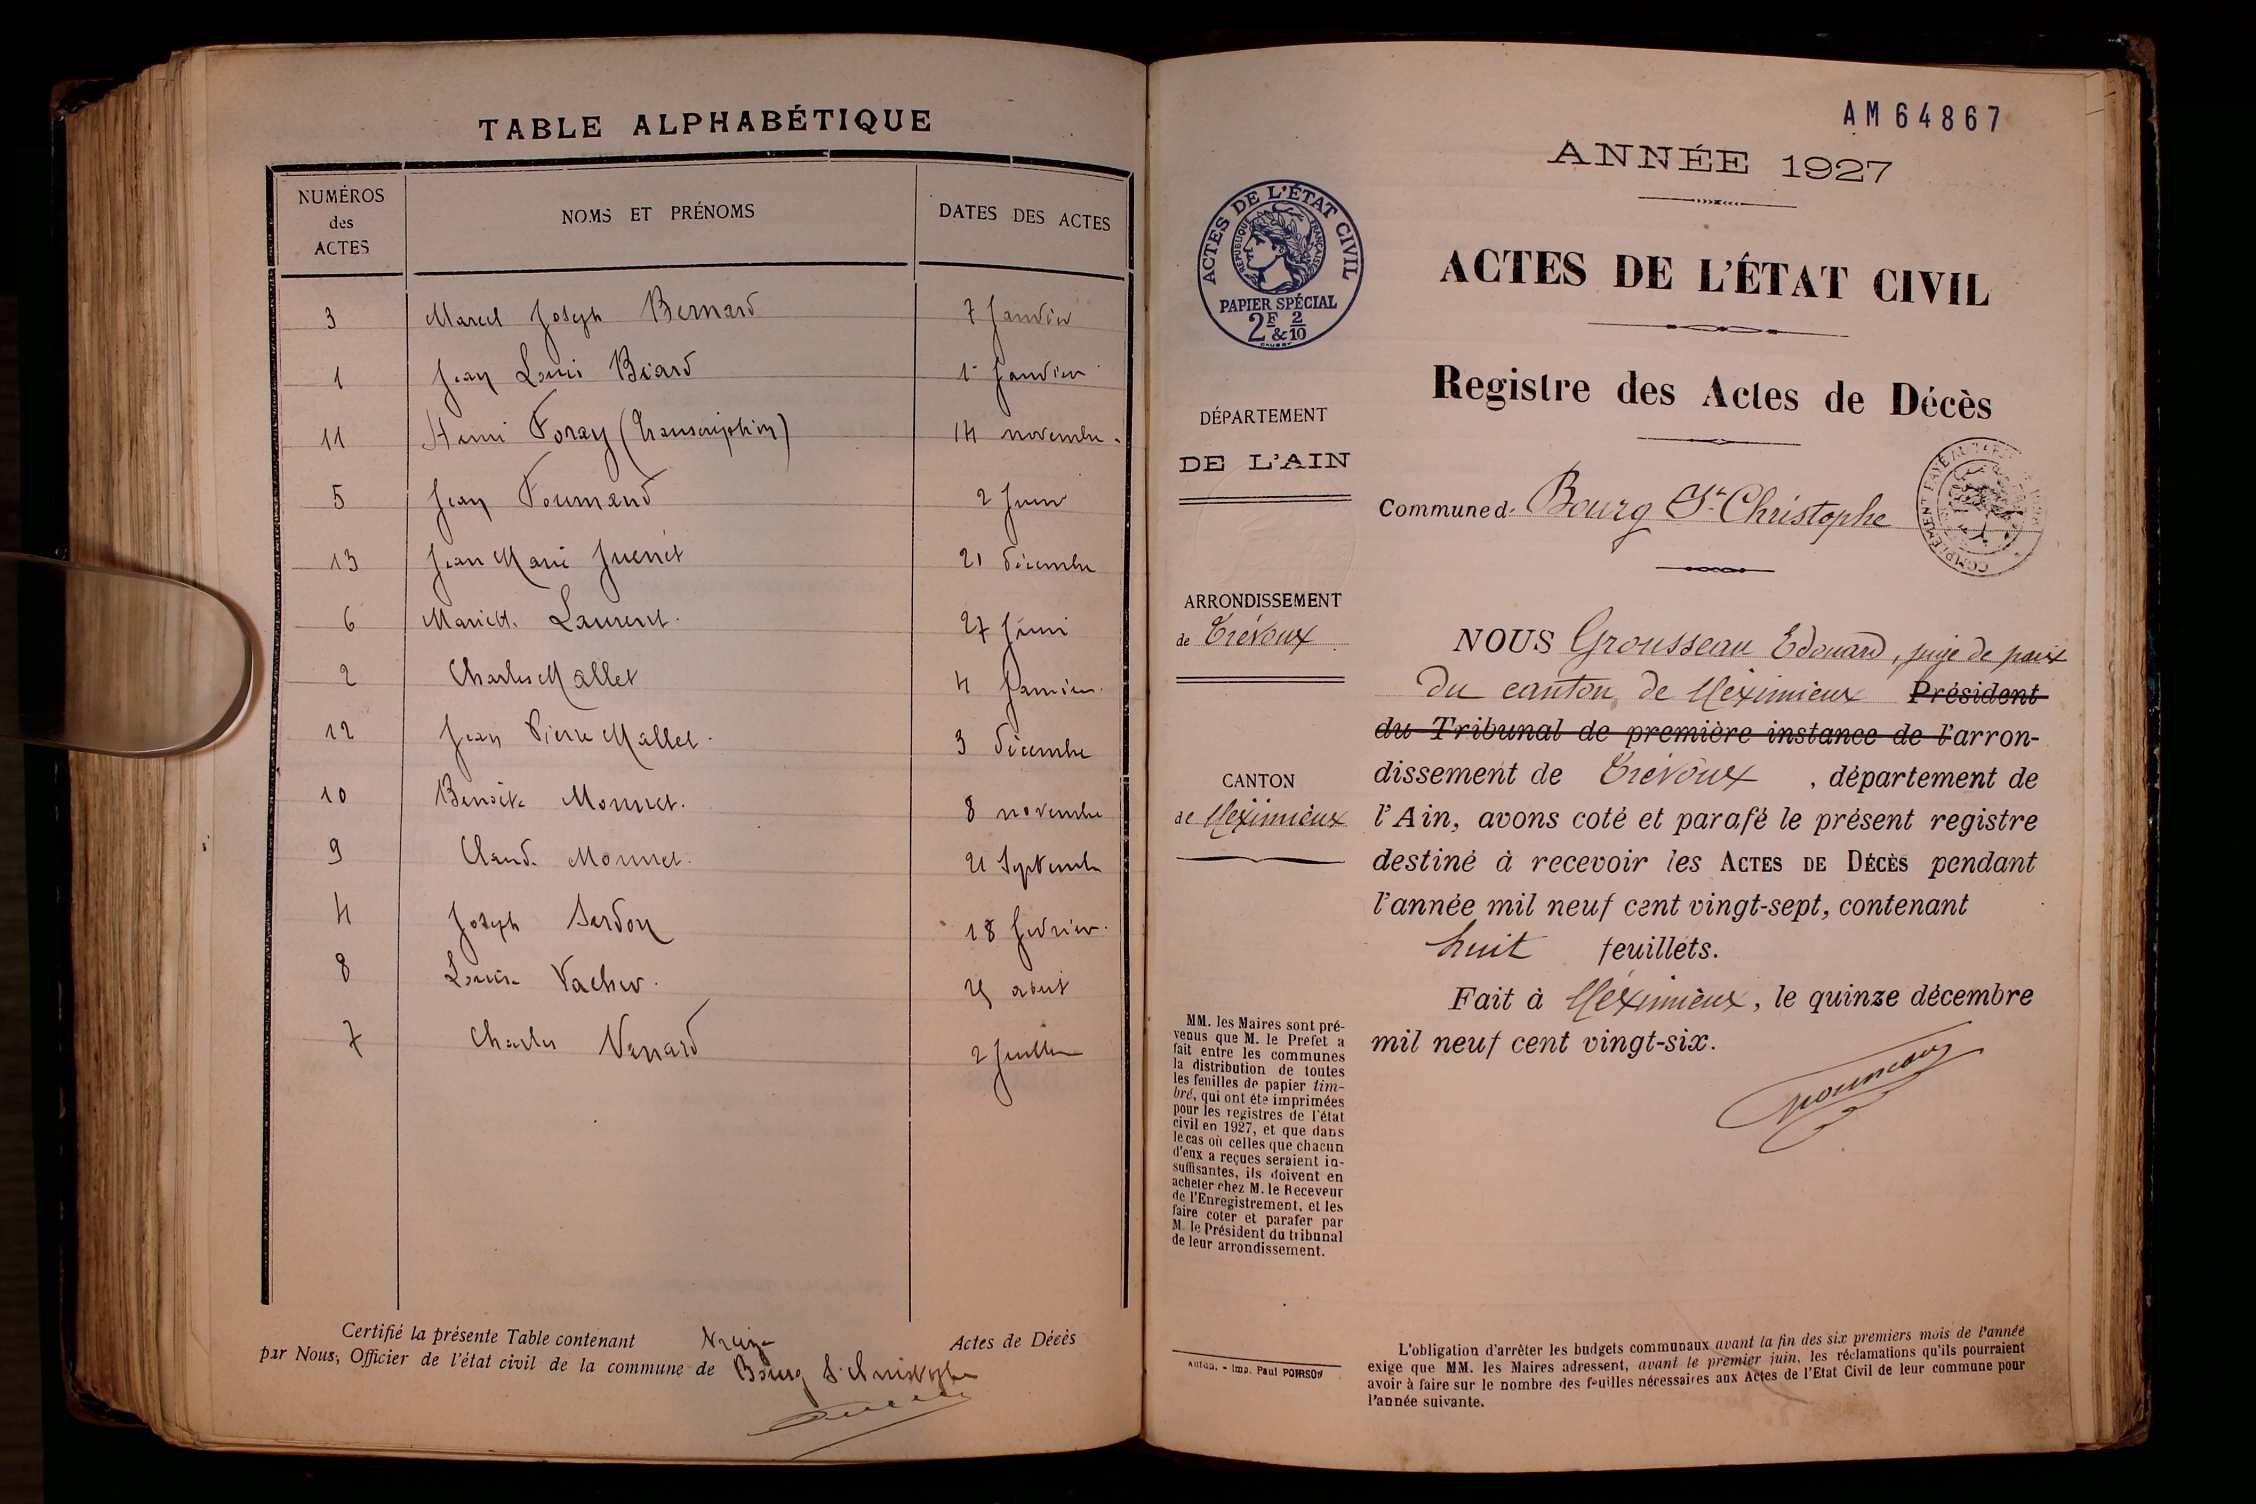 TABLE ALPHABÉTIQUE
NUMÉROS des ACTES
NOMS ET PRÉNOMS
DATES DES ACTES
3 Marcel Joseph Bernard 7 Janvier
1 Jean Louis Biard 1er Janvier
11 Henri Foray (Transcription) 14 novembre.
5 Jean 2 Juin
13 Jean Marie 21 décembre
6 Mariette Laurent. 27 Juin
2 Charles Mallet 4 Janvier.
12 Jean Pierre Mallet. 3 décembre
10 Benoite Monnet. 8 novembre
9 Claude Monnet. 21 Septembre
4 Joseph Serdon 18 février.
8 Louise Vacher. 25 août
7 Charles 2 Juillet
Certifié la présente Table contenant treize Actes de Décès
par Nous, Officier de l'état civil de la commune de Bourg St Christophe
AM64867
ANNÉE 1927
ACTES DE L'ÉTAT CIVIL
RÉPUBLIQUE FRANÇAISE
PAPIER SPÉCIAL
2F & 2/10
ACTES DE L'ÉTAT CIVIL
Registre des Actes de Décès
DÉPARTEMENT
DE L'AIN
Commune d. Bourg St Christophe
ARRONDISSEMENT
de Trévoux
CANTON
de Meximieux
NOUS Grousseau Edouard, juge de paix
du canton de Meximieux Président
du Tribunal de première instance de l'arron-
dissement de Trévoux, département de
l'Ain, avons coté et parafé le présent registre
destiné à recevoir les ACTES DE DÉCÈS pendant
l'année mil neuf cent vingt-sept, contenant
huit feuillets.
Fait à Méximieux, le quinze décembre
mil neuf cent vingt-six.
MM. les Maires sont pré-
venus que M. le Préfet a
fait entre les communes
la distribution de toutes
les feuilles de papier tim-
bré, qui ont été imprimées
pour les registres de l'état
civil en 1927, et que dans
le cas où celles que chacun
d'eux a reçues seraient in-
suffisantes, ils doivent en
acheter chez M. le Receveur
de l'Enregistrement, et les
faire coter et parafer par
M. le Président du tribunal
de leur arrondissement.
Imp. Paul POIRSON
L'obligation d'arrêter les budgets communaux avant la fin des six premiers mois de l'année
exige que MM. les Maires adressent, avant le premier juin, les réclamations qu'ils pourraient
avoir à faire sur le nombre des feuilles nécessaires aux Actes de l'Etat Civil de leur commune pour
l'année suivante.